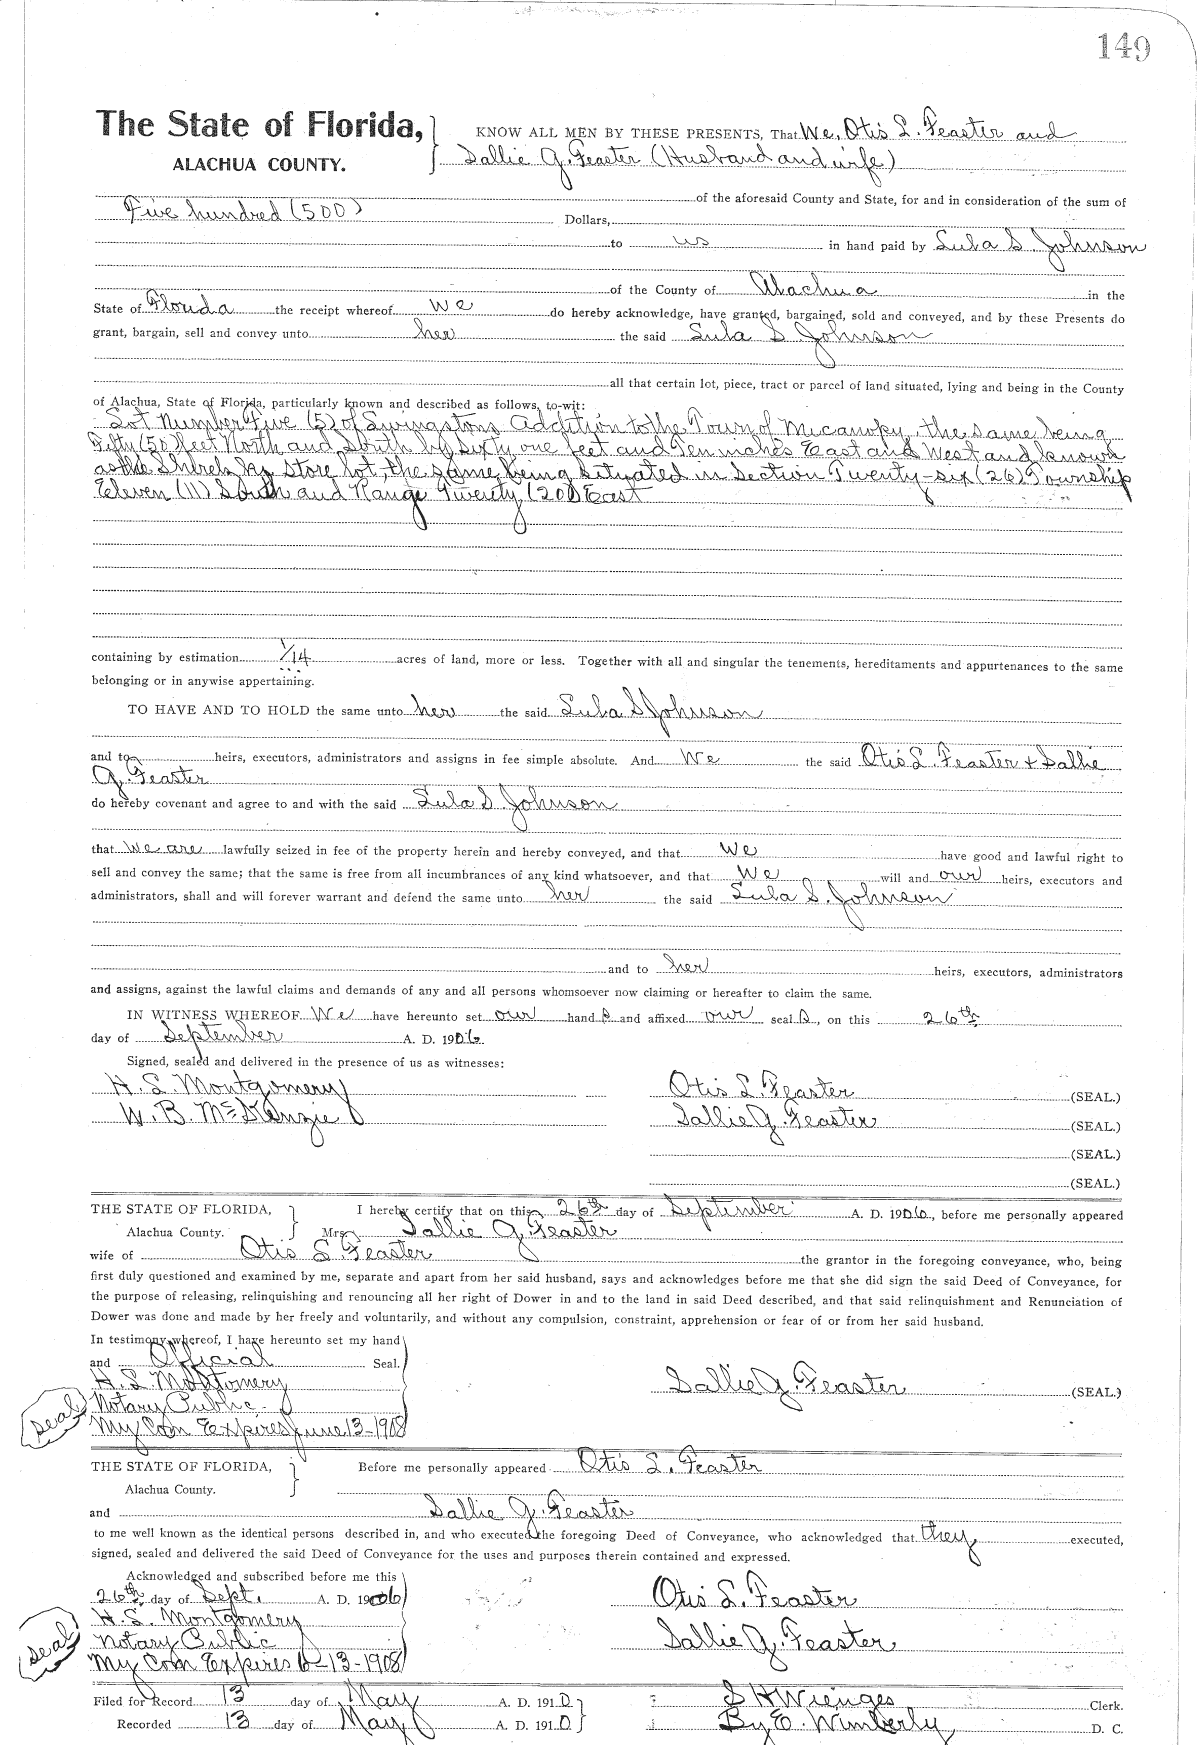 149
The State of Florida,
ALACHUA COUNTY.
KNOW ALL MEN BY THESE PRESENTS, That We, Otis L. Feaster and
Sallie J. Feaster (Husband and wife)
of the aforesaid County and State, for and in consideration of the sum of
Five hundred (500) Dollars,
to us in hand paid by Lula S. Johnson
of the County of Alachua in the
State of Florida the receipt whereof We do hereby acknowledge, have granted, bargained, sold and conveyed, and by these Presents do
grant, bargain, sell and convey unto her the said Lula S Johnson
all that certain lot, piece, tract or parcel of land situated, lying and being in the County
of Alachua, State of Florida, particularly known and described as follows, to-wit:
Lot Number Five (5) of Livingstons Addition to the Town of Micanopy, the same being
Fifty (50) feet North and South by Sixty one feet and Ten inches East and West and known
as the Store lot, the same being situated in Section Twenty-six (26) Township
Eleven (11) South and Range Twenty (20) East
containing by estimation 1/14 acres of land, more or less. Together with all and singular the tenements, hereditaments and appurtenances to the same
belonging or in anywise appertaining.
TO HAVE AND TO HOLD the same unto her the said Lula S Johnson
and to heirs, executors, administrators and assigns in fee simple absolute. And We the said Otis L. Feaster + Sallie
J. Feaster
do hereby covenant and agree to and with the said Lula S Johnson
that We are lawfully seized in fee of the property herein and hereby conveyed, and that We have good and lawful right to
sell and convey the same; that the same is free from all incumbrances of any kind whatsoever, and that We will and our heirs, executors and
administrators, shall and will forever warrant and defend the same unto her the said Lula S. Johnson
and to her heirs, executors, administrators
and assigns, against the lawful claims and demands of any and all persons whomsoever now claiming or hereafter to claim the same.
IN WITNESS WHEREOF We have hereunto set our hand s and affixed our seal s, on this 26th
day of September A. D. 1906.
Signed, sealed and delivered in the presence of us as witnesses:
H. L. Montgomery Otis L. Feaster (SEAL.)
W. B. McKenzie Sallie J. Feaster (SEAL.)
(SEAL.)
(SEAL.)
THE STATE OF FLORIDA, I hereby certify that on this 26th day of September A. D. 1906, before me personally appeared
Alachua County. Mrs. Sallie J. Feaster
wife of Otis L Feaster the grantor in the foregoing conveyance, who, being
first duly questioned and examined by me, separate and apart from her said husband, says and acknowledges before me that she did sign the said Deed of Conveyance, for
the purpose of releasing, relinquishing and renouncing all her right of Dower in and to the land in said Deed described, and that said relinquishment and Renunciation of
Dower was done and made by her freely and voluntarily, and without any compulsion, constraint, apprehension or fear of or from her said husband.
In testimony whereof, I have hereunto set my hand
and Official Seal.
H. L Montgomery Sallie J. Feaster (SEAL.)
Notary Public.
seal My Com Expires June 13-1908
THE STATE OF FLORIDA, Before me personally appeared Otis L. Feaster
Alachua County.
and Sallie J. Feaster
to me well known as the identical persons described in, and who executed the foregoing Deed of Conveyance, who acknowledged that they executed,
signed, sealed and delivered the said Deed of Conveyance for the uses and purposes therein contained and expressed.
Acknowledged and subscribed before me this
26th day of Sept. A. D. 1906 Otis L. Feaster
H. L. Montgomery
seal Notary Public Sallie J. Feaster
My Com Expires 6-13-1908
Filed for Record 13 day of May A. D. 1910 S H Wienges Clerk.
Recorded 13 day of May A. D. 1910 By E. Wimberly D. C.